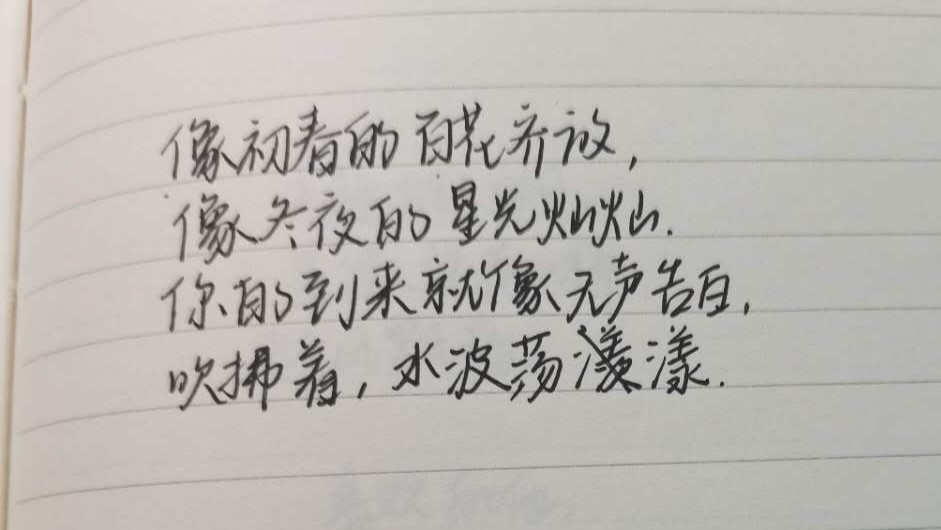 像初春的百花齐放,
像冬夜的星光灿灿.
你的到来就像无声告白,
吹拂着,水波荡漾漾.